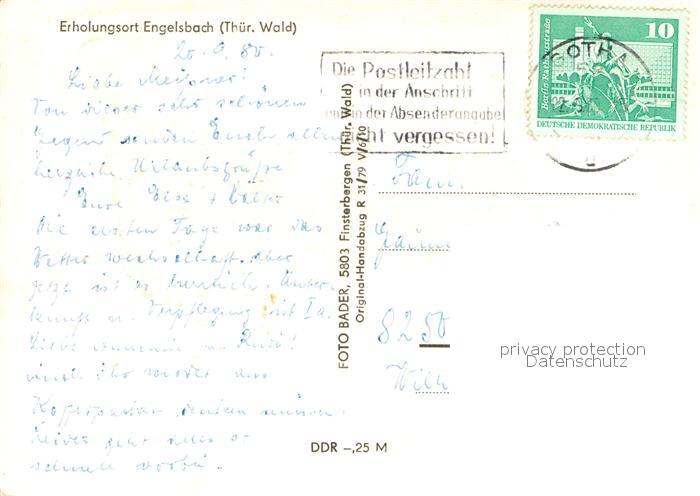 Erholungsort Engelsbach (Thür. Wald)
80.
Liebe
Von dieser sehr schönen
Gegend senden Euch allen
herzliche Urlaubsgrüße
Eure Elsa +
Die ersten Tage war das
Wetter wechselhaft, aber
jetzt ist es herrlich. Unter-
kunft u. Verpflegung ist Ia.
Liebe u. Rudi!
Ihr wieder ans
Kofferpacken denken müssen.
Leider geht alles so
schnell vorbei.
DDR -,25 M
FOTO BADER, 5803 Finsterbergen (Thür. Wald)
Original-Handabzug R 31/79 V/6/50
Die Postleitzahl
in der Anschrift
in der Absenderangabe
nicht vergessen!
GOTHA
10
Berlin, Rathausstraße
DEUTSCHE DEMOKRATISCHE REPUBLIK
Fam.
8250
privacy protection
Datenschutz